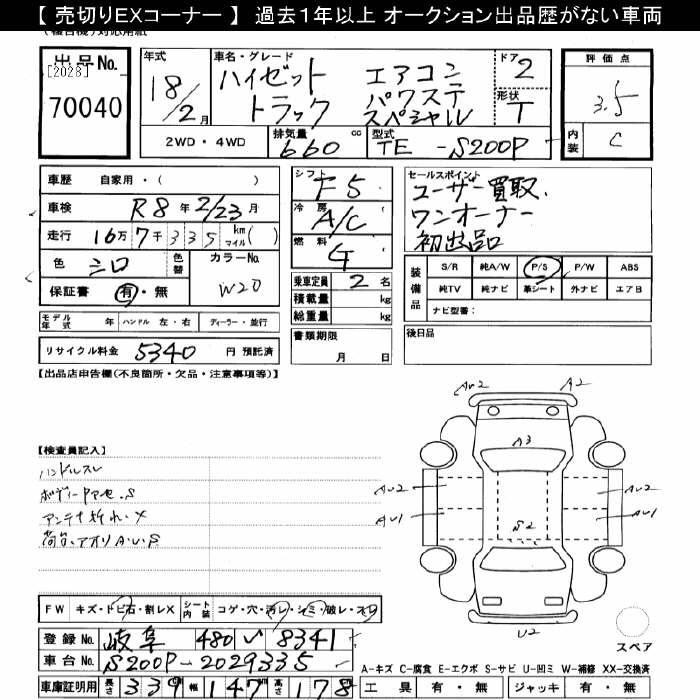 【 売切りEXコーナー 】 過去1年以上 オークション出品歴がない車両
出品No. [2028] 70040
年式 18/2月
車名・グレード ハイゼットトラック エアコン パワステ スペシャル
ドア 2
形状 T
評価点 3.5
内装 C
2WD・4WD
排気量 660 cc
型式 TE-S200P
車歴 自家用・( )
車検 R8年2/23月
走行 16万7千335 km マイル( )
色 シロ 色替
カラーNo. W20
保証書 有・無
シフト F5
冷房 A/C
燃料 G
乗車定員 2名
積載量 kg
総重量 kg
書類期限 月 日
セールスポイント
ユーザー買取.
ワンオーナー
初出品
装備品 S/R 純A/W P/S P/W ABS
純TV 純ナビ 革シート 外ナビ エアB
ナビ型番:
後日品
モデル年式 年 ハンドル 左・右 ディーラー・並行
リサイクル料金 5340 円 預託済
【出品店申告欄(不良箇所・欠品・注意事項等)】
【検査員記入】
ハンドルスレ
アンテナ折れ・X
荷台、アオリA・U・S
AU2 A2
A3
AU2 AU2
AU1 AU1
S2
U2
スペア
FW キズ・トビ石・割レX シート内装 コゲ・穴・汚レ・シミ・破レ・スレ
登録No. 岐阜 480 い 8341
車台No. S200P-2029335
A-キズ C-腐食 E-エクボ S-サビ U-凹ミ W-補修 XX-交換済
車庫証明用 長さ 339 幅 147 高さ 178
工具 有・無 ジャッキ 有・無